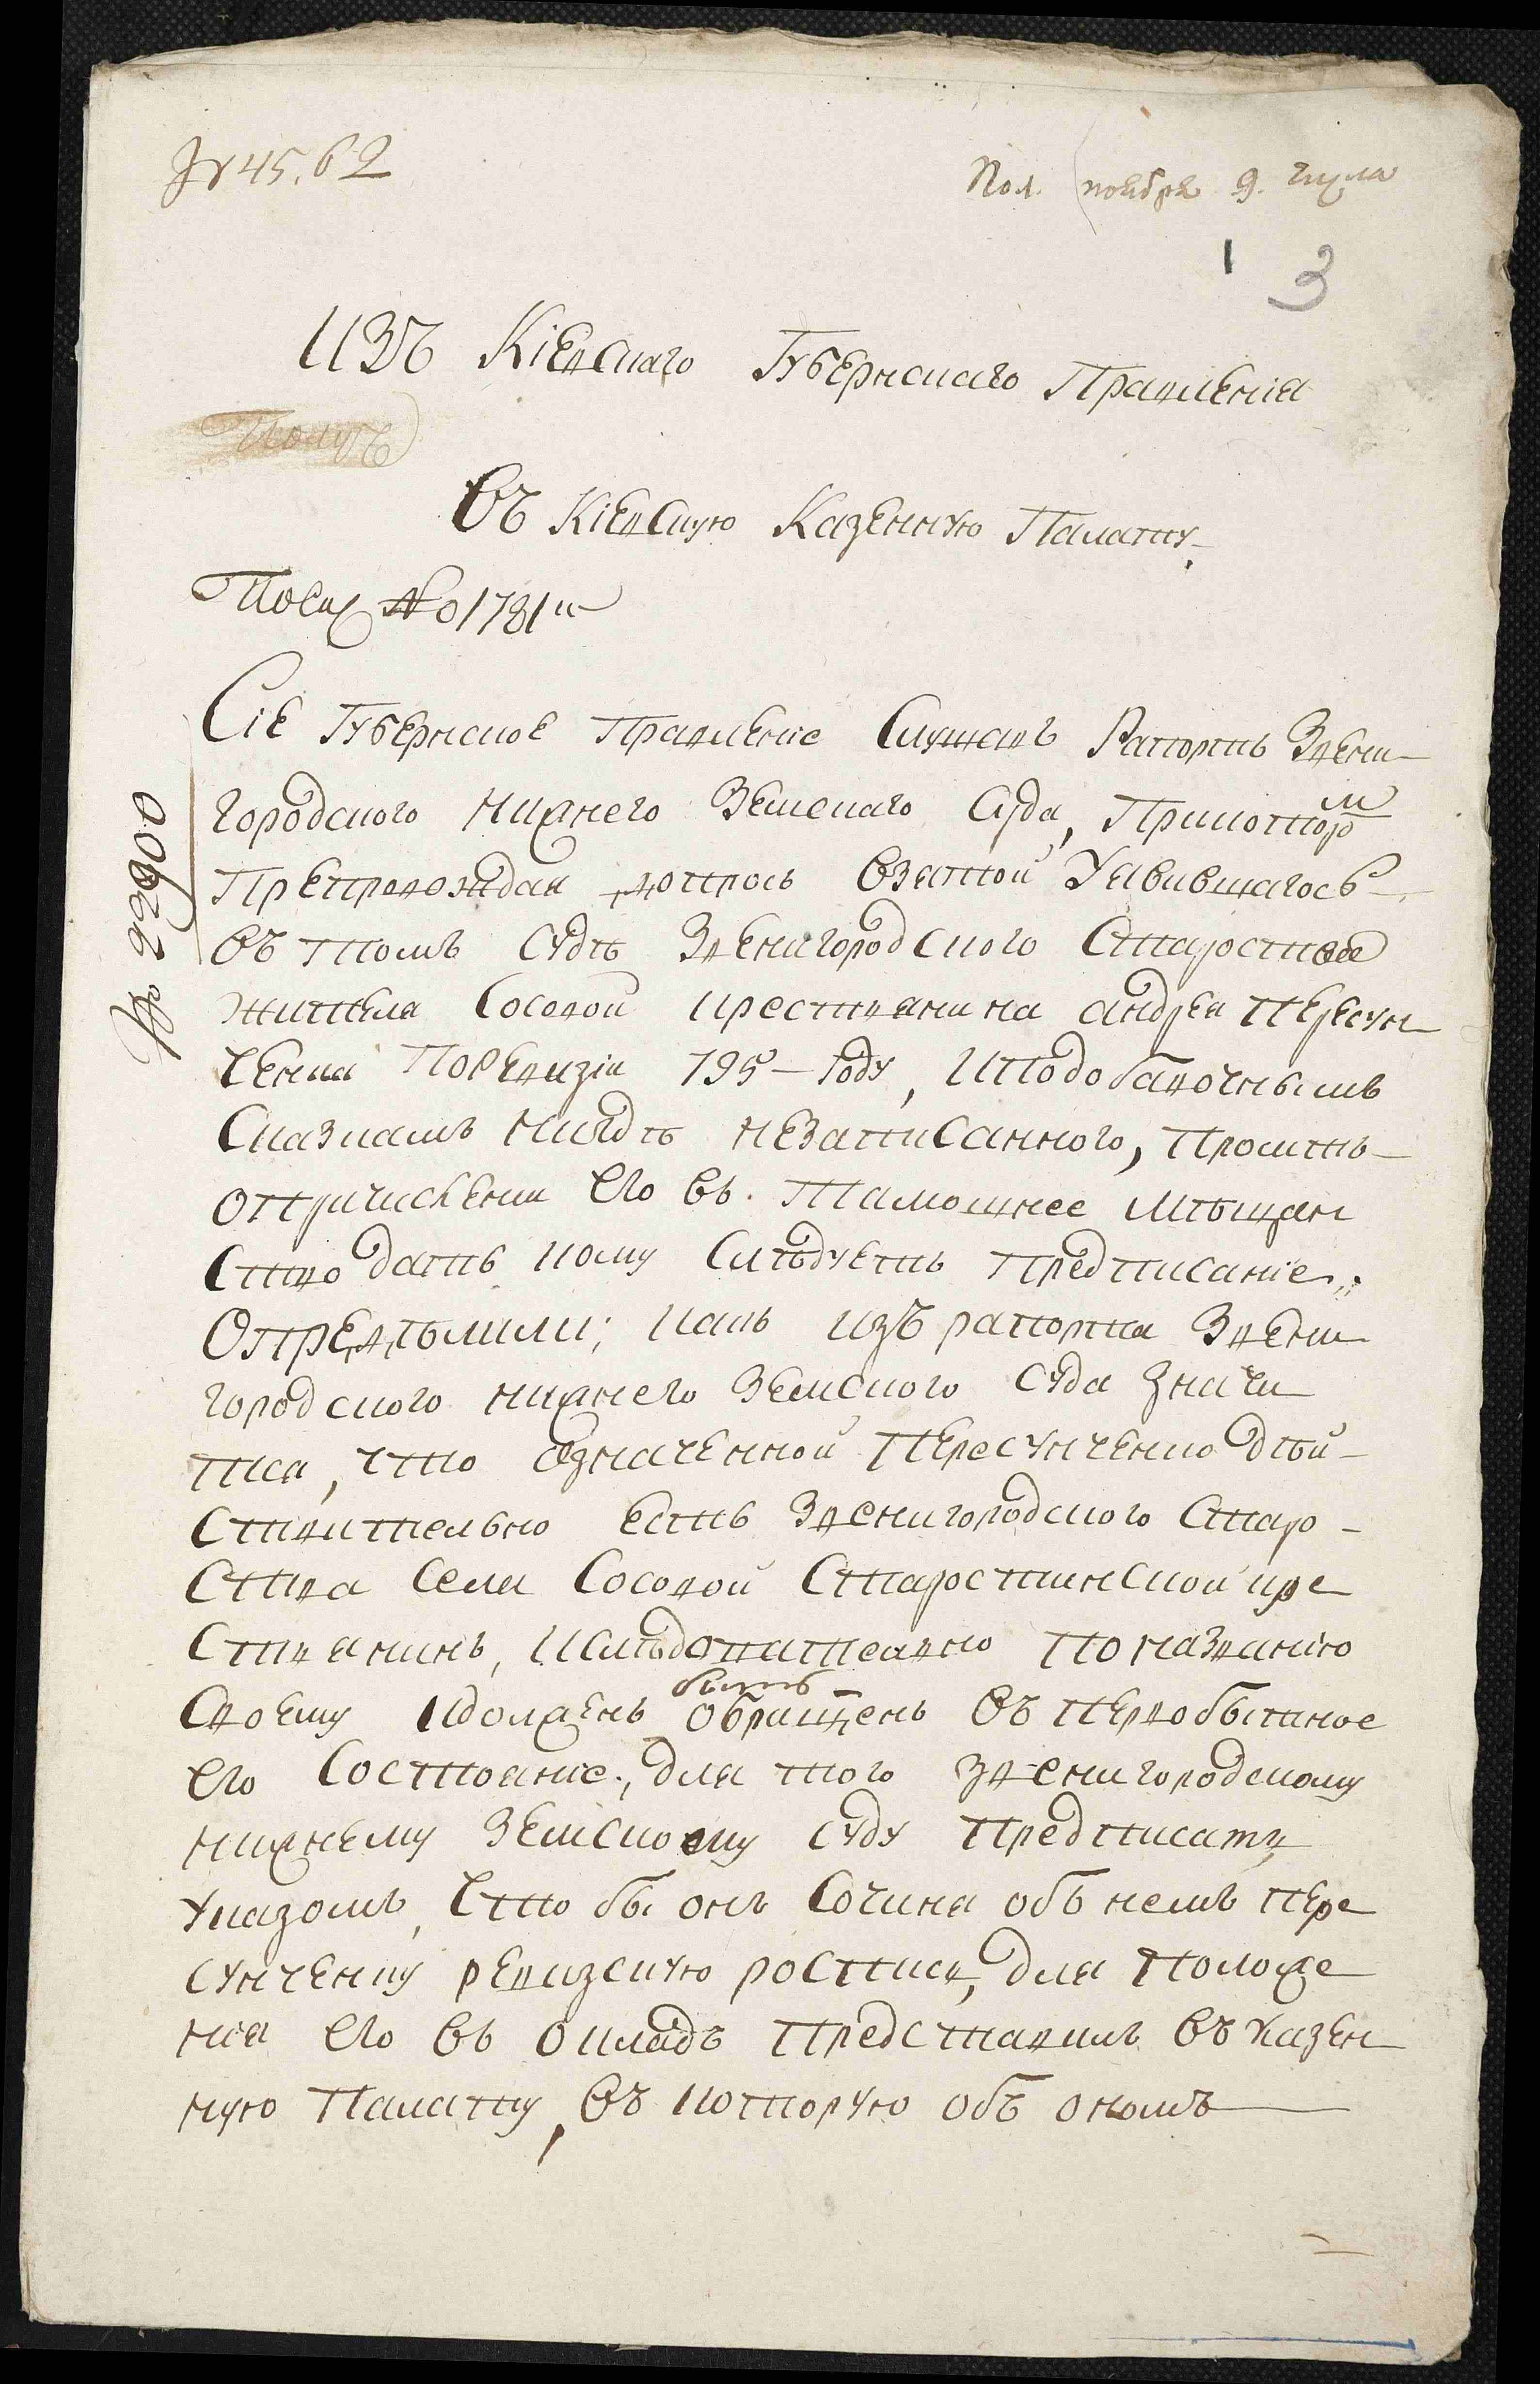 № 4562
Пол. ноября 9. числа
1 3
Изъ Кіевскаго Губернскаго Правленія
Въ Кіевскую Казенную Палату.
№ 1781
Сіе Губернское правленіе Слушавъ Рапортъ Звени-
городского нижнего Земскаго Суда, Прикоторомъ
Препровождая допросъ взятой Уявившагось
въ томъ Судѣ Звенигородского Староства
жителя Сосовой крестьянина андрея Пересун
ченка Поревизіи 795 – году, Иподобавочнымъ
Сказкамъ нигдѣ незаписанного, проситъ
опричисленіи Его въ тамошнее мѣщан
Ство дать кому Слѣдуетъ предписаніе.
Опредѣлили; какъ изъ рапорта Звени
городского нижнего Земского Суда значи
тся, что означенной Пересунченко дѣй-
Ствительно есть Звенигородского Старо-
Ства Села Сосовой Старостинской кре
Стьянинъ, Ислѣдовательно по названію
Своему Идолженъ быть обращенъ въ первобытное
Его Состояніе, для того звенигородскому
нижнему Земскому Суду предписать
указомъ, Что бы онъ Сочиня объ немъ пере
сунченку ревизскую роспись, для положе
нія Его въ окладъ Представилъ въ казен
ную Палату, въ которую объ ономъ
№ 22900